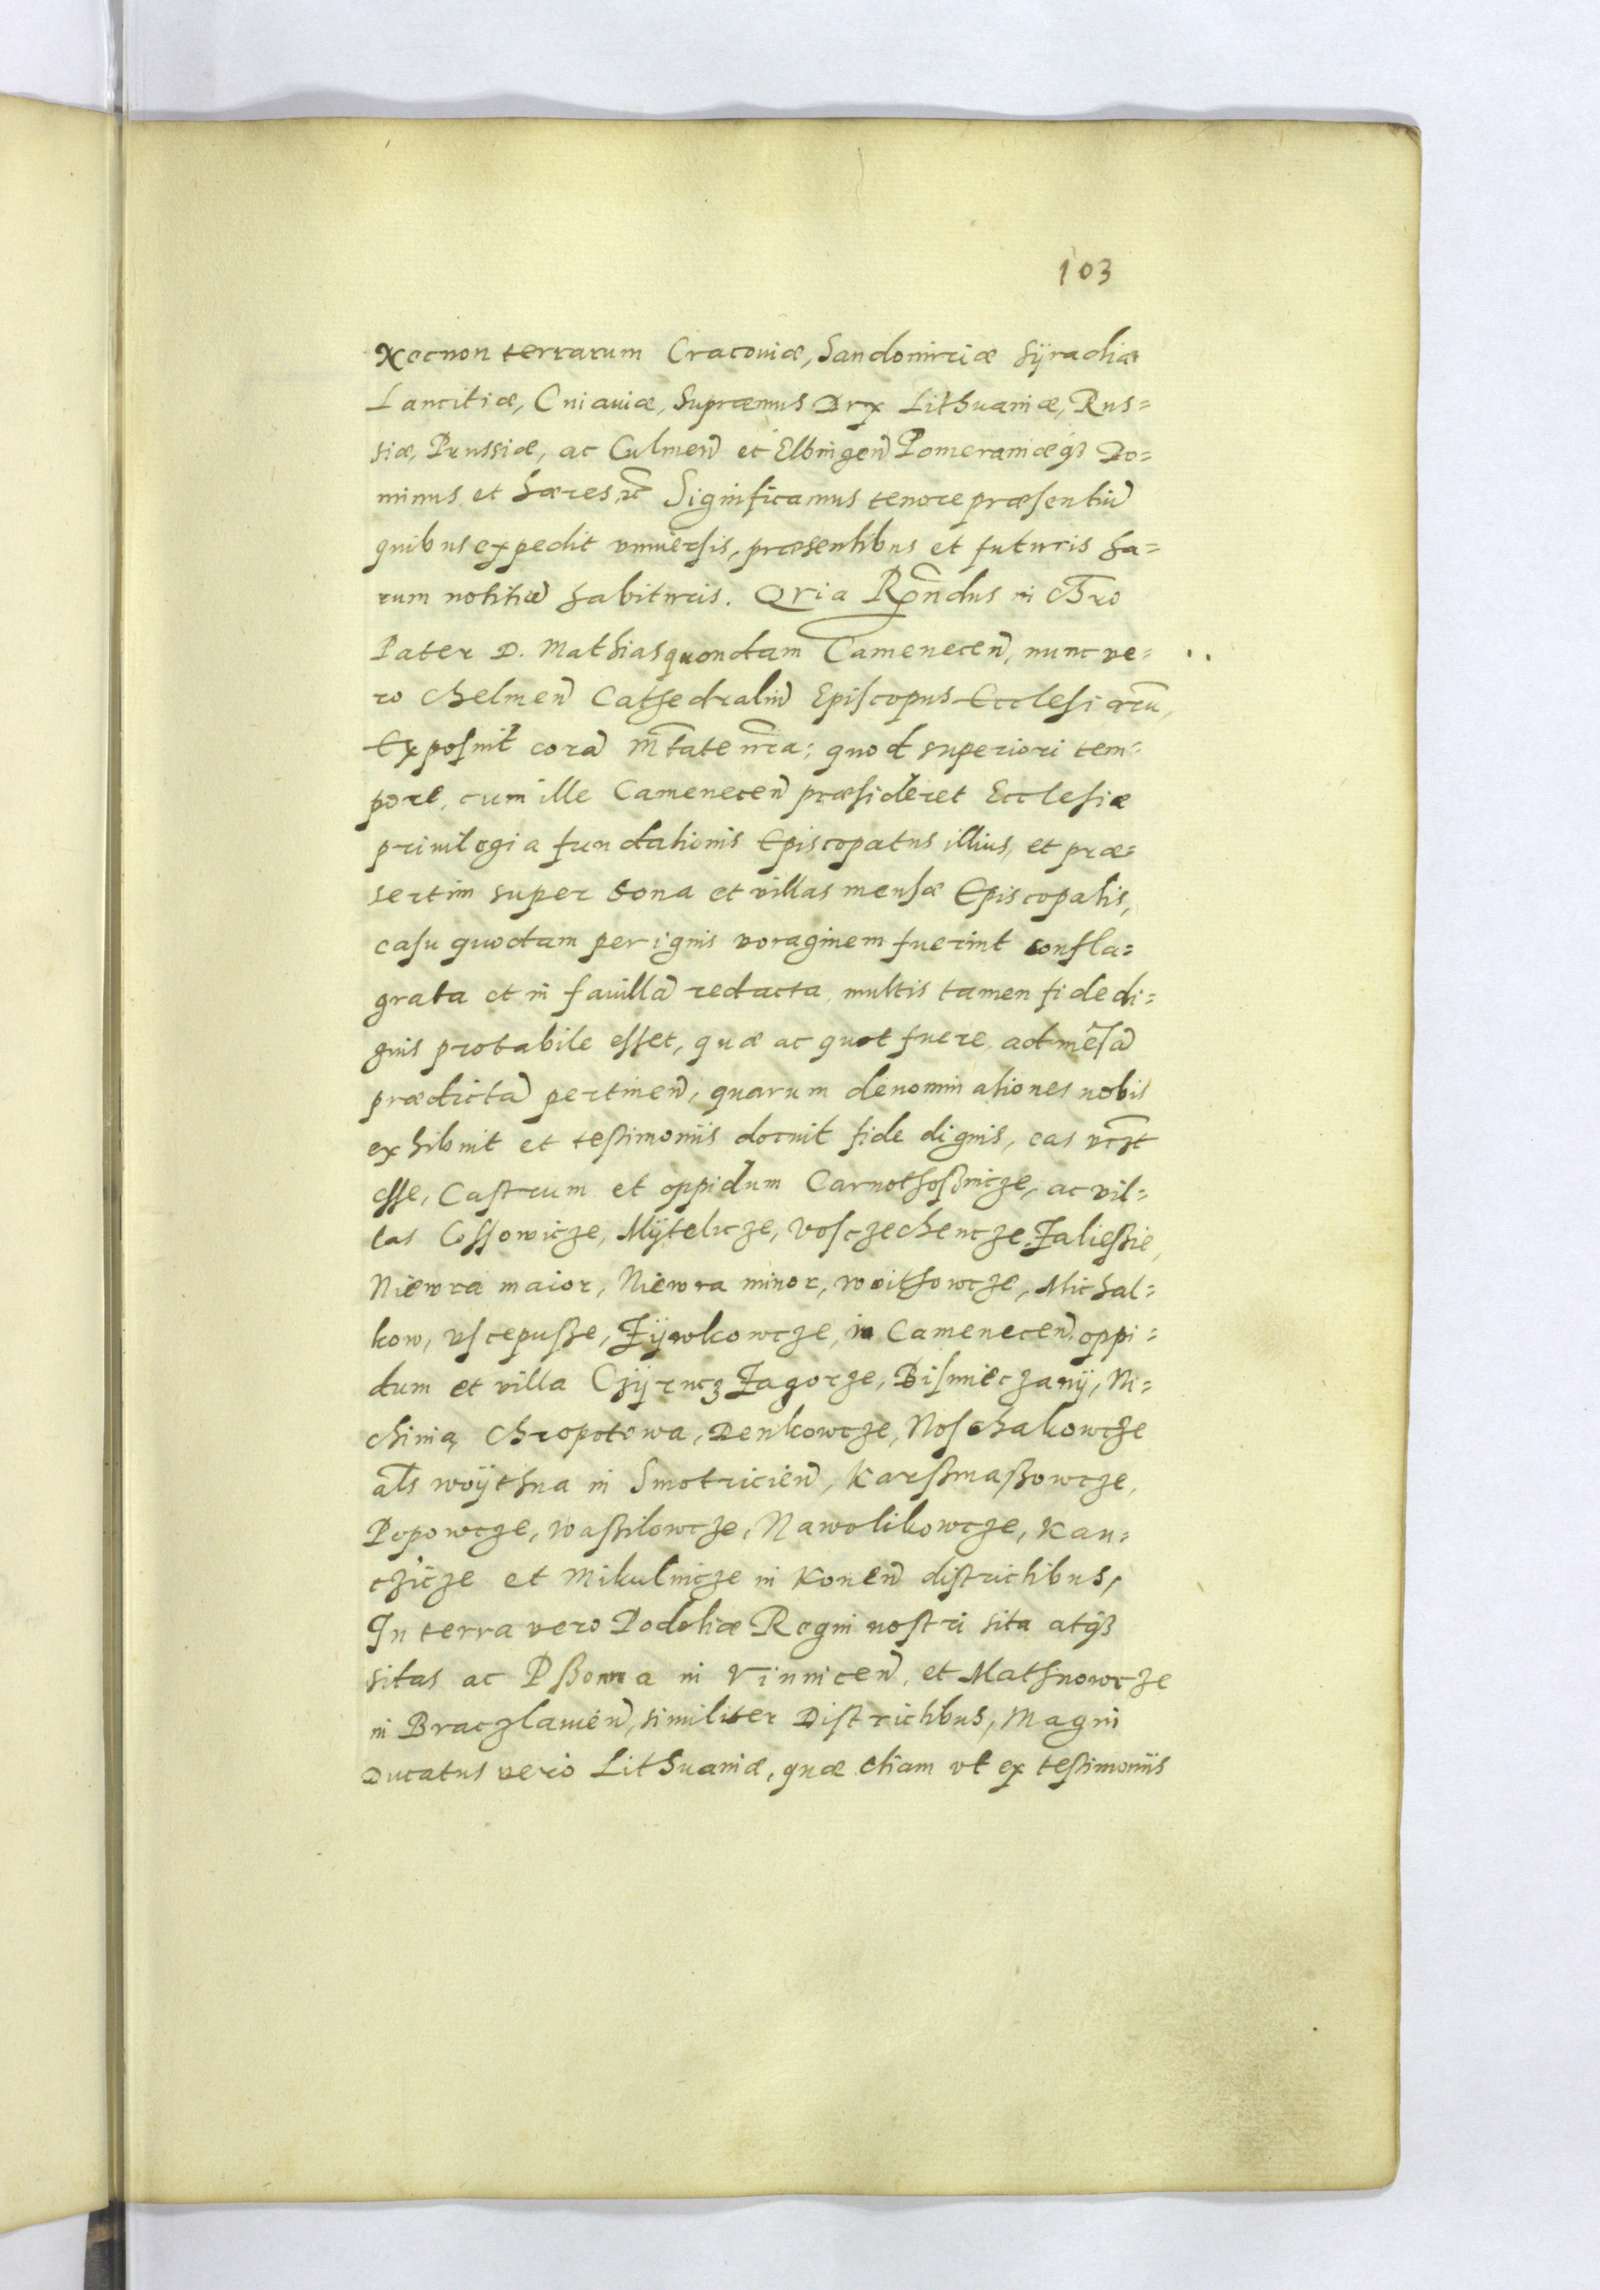 103
Necnon terrarum Cracouiæ, Sandomiriæ Sÿradiæ
Lancitiæ, Cuiauiæ, Supræmus Dux Lithuaniæ, Rus=
siæ, Prussiæ, ac Culmeñ et Elbingeñ Pomeraniæq3 Do=
minus et hæres, etc̃ Significamus tenore præsentiũ
quibus expedit vniuersis, præsentibus et futuris ha=
rum notitiã habituris. Quia Rñdus in Chro
Pater D. Mathias quondam Cameneceñ, nunc ve=
ro Chelmeñ Cathedraliũ Episcopus Ecclesiarũ,
Exposuit corã Mtate nr̃a: quod superiori tem=
pore, cum ille Cameneceñ præsideret Ecclesiæ
priuilegia fundationis Episcopatus illius, et præ=
sertim super bona et villas mensæ Episcopalis,
casu quodam per ignis voraginem fuerint confla=
grata et in fauillã redacta, multis tamen fide di=
gnis probabile esset, quæ ac quot fuere ad mẽsã
prædictã pertineñ, quarum denominationes nobis
exhibuit et testimoniis docuit fide dignis, eas vcz̃t
esse, Castrum et oppidum Carnothoßincze, ac vil=
las Cossowicze, Mÿtelicze, Vosczechencze Zaließie,
Niewra maior, Niewra minor, woithowcze, Michal=
kow, Vscepusße, Zÿwkowcze, in Cameneceñ. oppi=
dum et villa Czÿrncz Zagorze, Bisnnieczanÿ, Ni=
chinia, Chropotowa, Denkowcze, Noschakowcze
als̃ wöÿthna in Smotricieñ, Karßmaßowcze,
Popowcze, Waßilowcze, Nawolikowcze, Kau=
czicze et Mikulnicze in Koneñ districtibus,
In terra vero Podoliæ Regni nostri sita atq3
sitas ac Pßonna in Vinniceñ, et Mathnowcze
in Braczlauieñ, similiter Districtibus, Magni
Ducatus vero Lithuaniæ, quæ etiam vt ex testimoniis